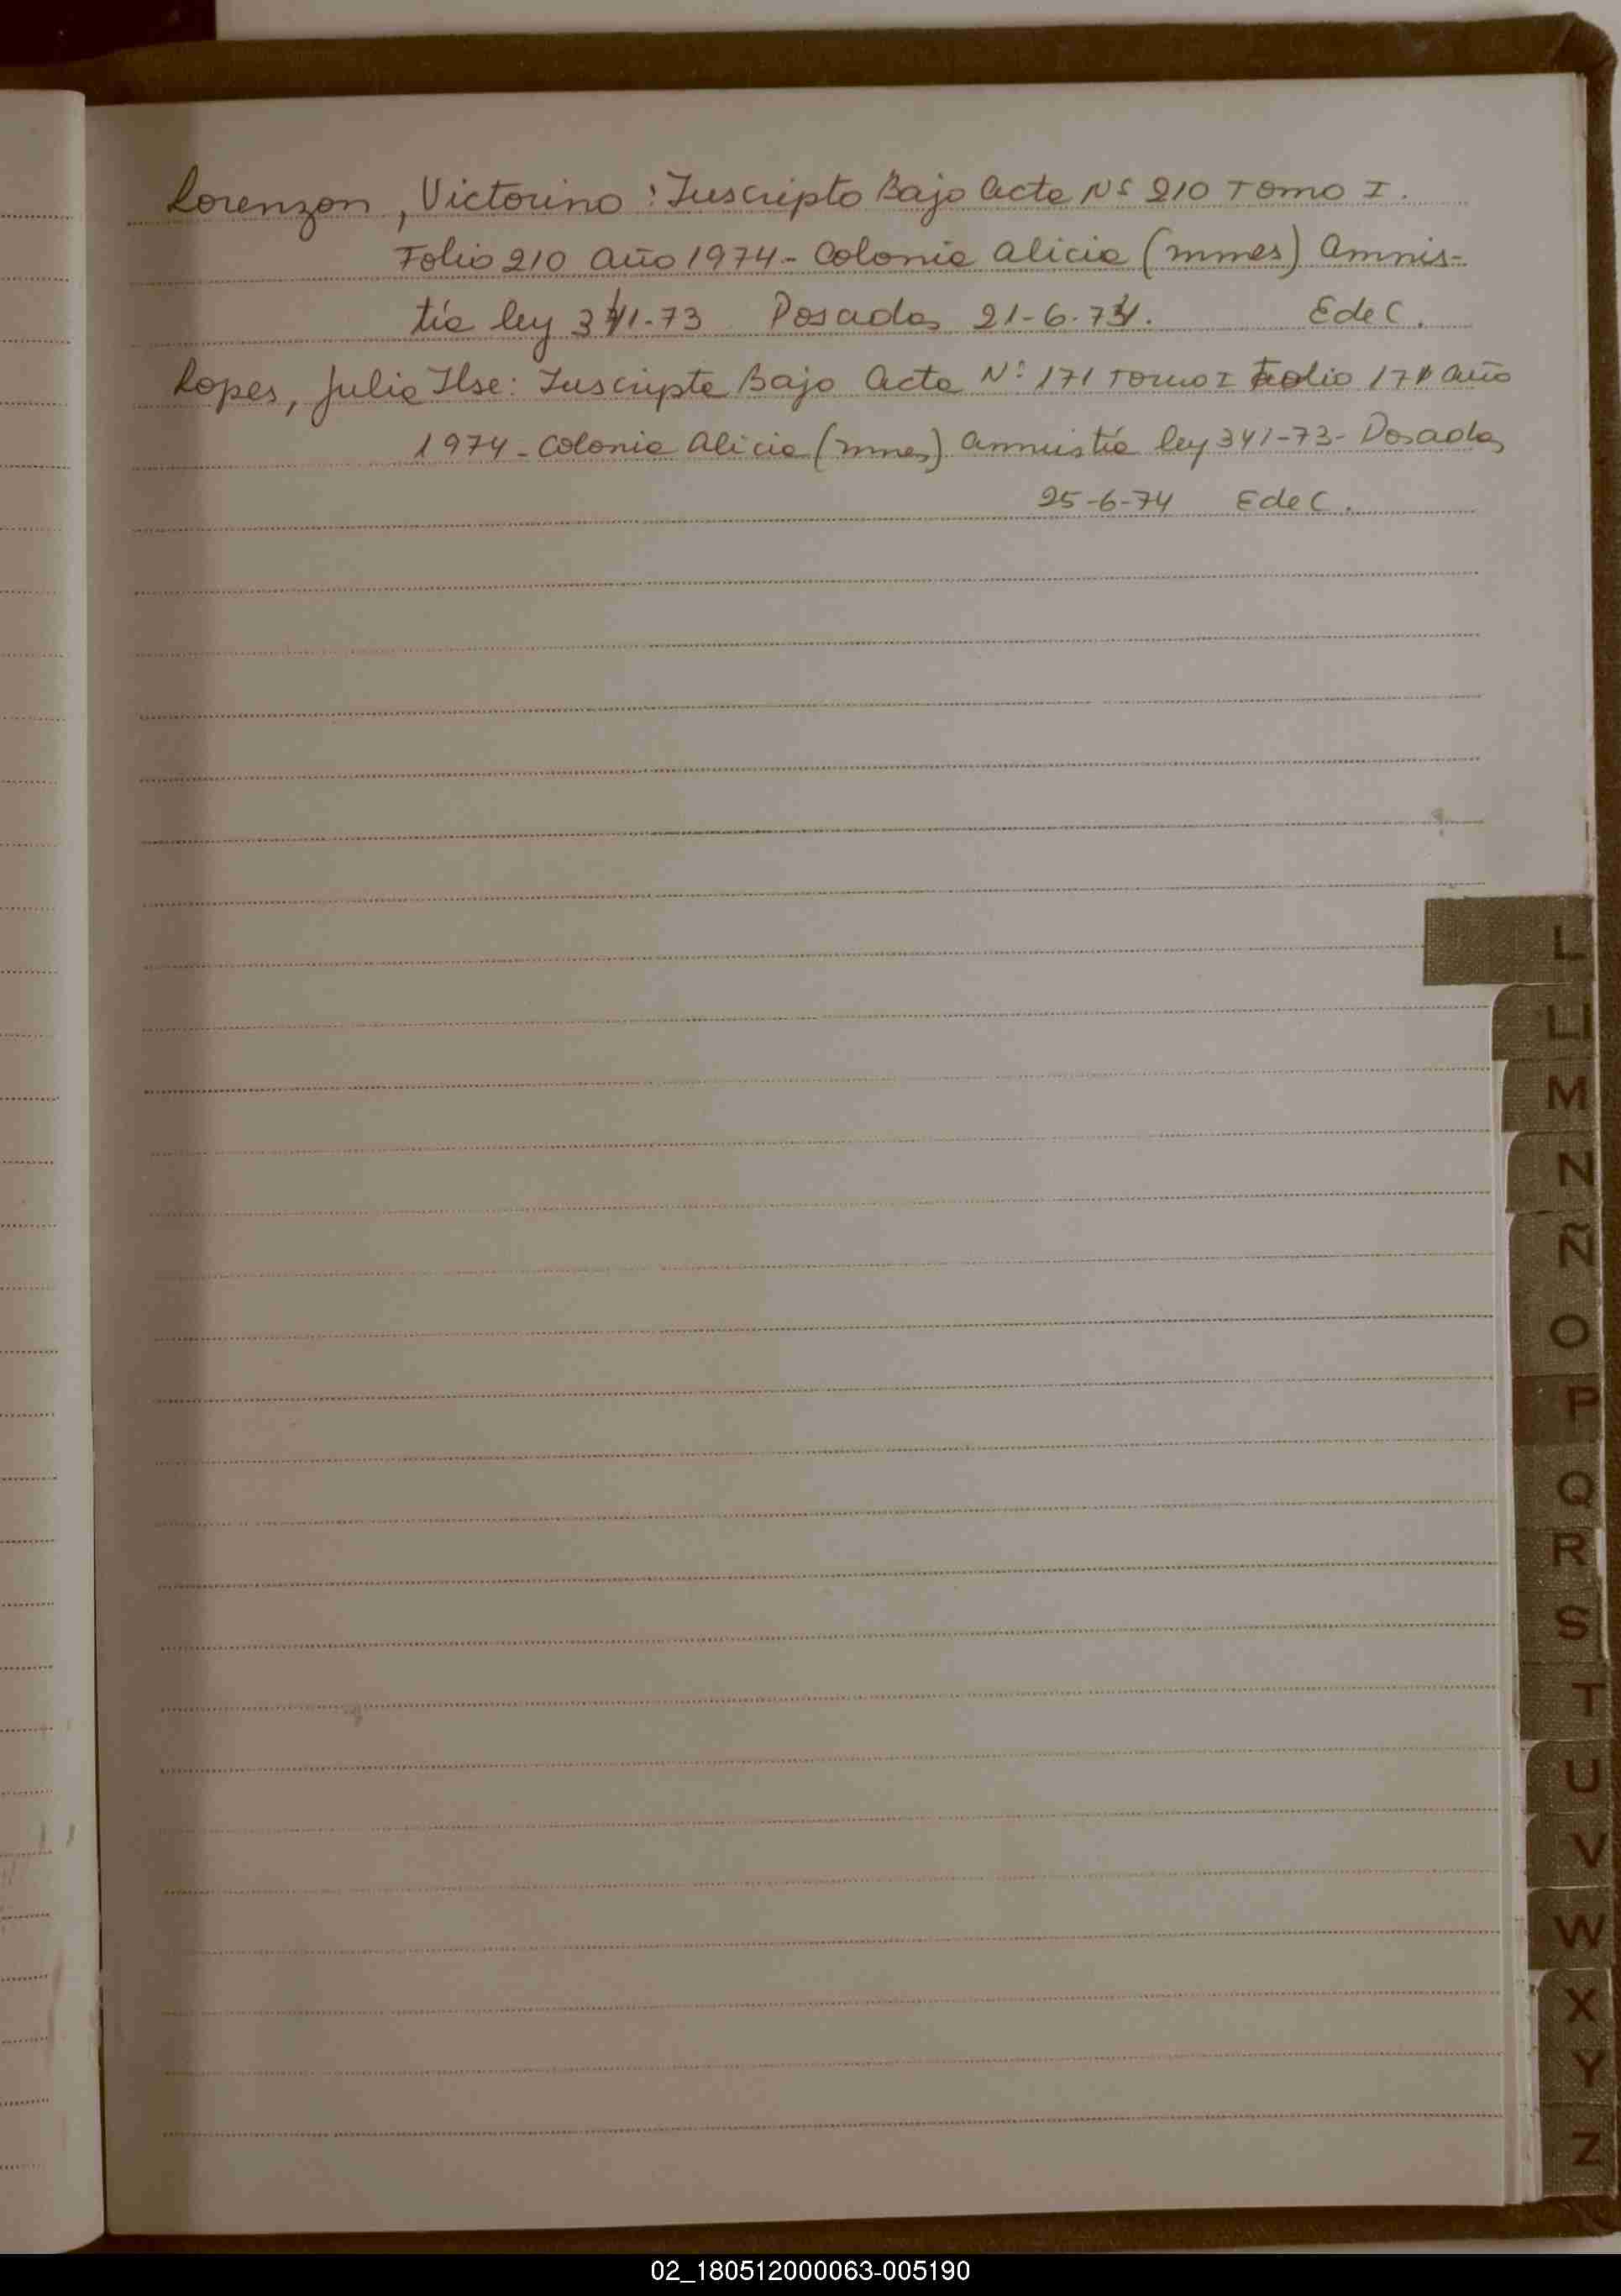 Lorenzon, Victorino: Inscripto Bajo Acta Nº 210 Tomo I.
Folio 210 Año 1974- Colonia Alicia (mnes) Amnis-
tía ley 341-73 Posadas 21-6-74. EdeC.
Lopes, Julia Ilse: Inscripta Bajo Acta Nº 171 Tomo I Folio 171 año
1974- Colonia Alicia (mnes) Amnistía ley 341-73- Posadas
25-6-74 EdeC.
L
Ll
M
N
Ñ
O
P
Q
R
S
T
U
V
W
X
Y
Z
02_180512000063-005190